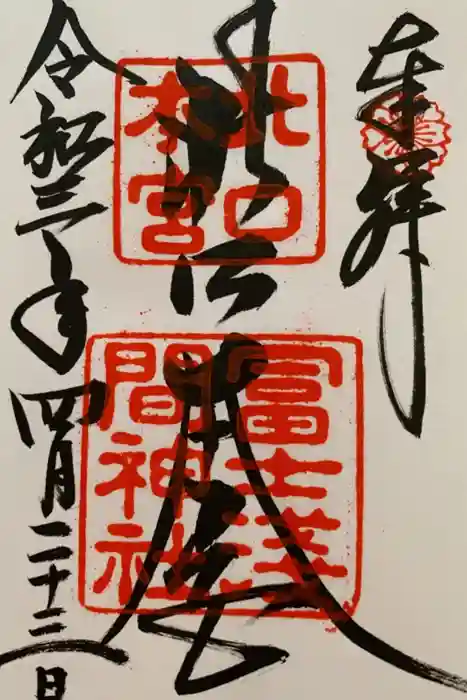 奉拝
北口本宮
北口
本宮
冨士浅
間神社
令和三年四月二十三日